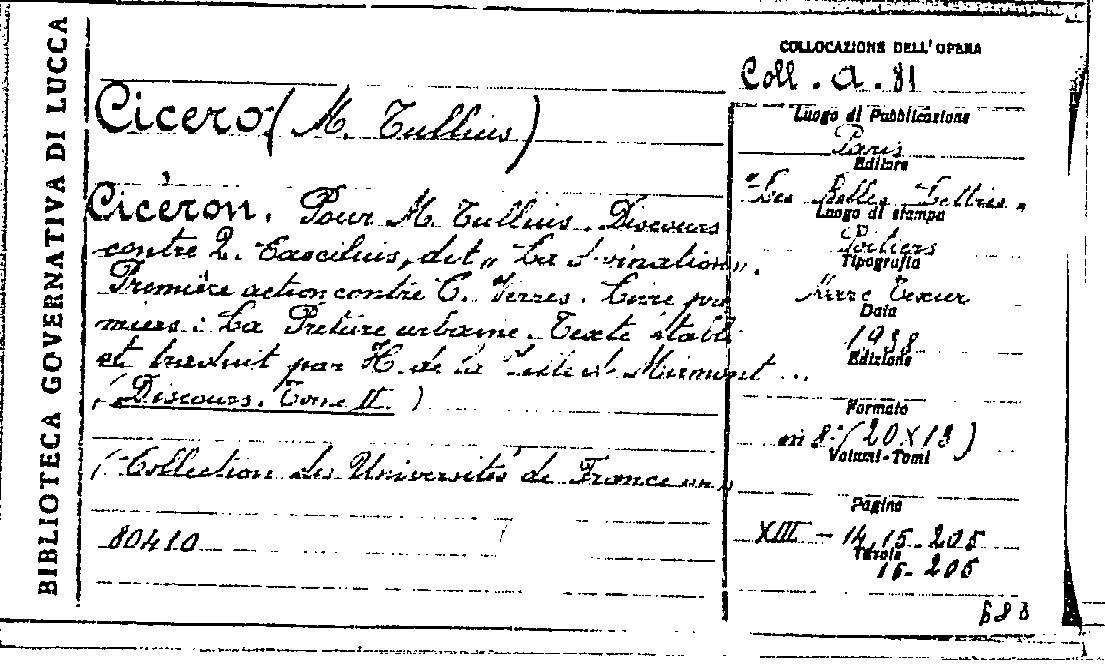 BIBLIOTECA GOVERNATIVA DI LUCCA
COLLOCAZIONE DELL'OPERA
Coll. a. 81
Cicero (M. Tullius)
Cicéron. Pour M. Tullius. Discours
contre Q. Caecilius, dit "La Divination".
Première action contre C. Verres. Livre pre
miers: La Preture urbaine. Texte établi
et traduit par H. de la Ville de Mirmont ...
(Discours. Tome II.)
(Collection des Universités de France
80410
Luogo di Pubblicazione
Paris
Editore
"Les Belles Lettres"
Luogo di stampa
Poitiers
Tipografia
Marc Texier
Data
1938
Edizione
Formato
in 8° (20 X 13)
Volumi-Tomi
Pagine
XIII - 14, 15-205
Tavole
15-205